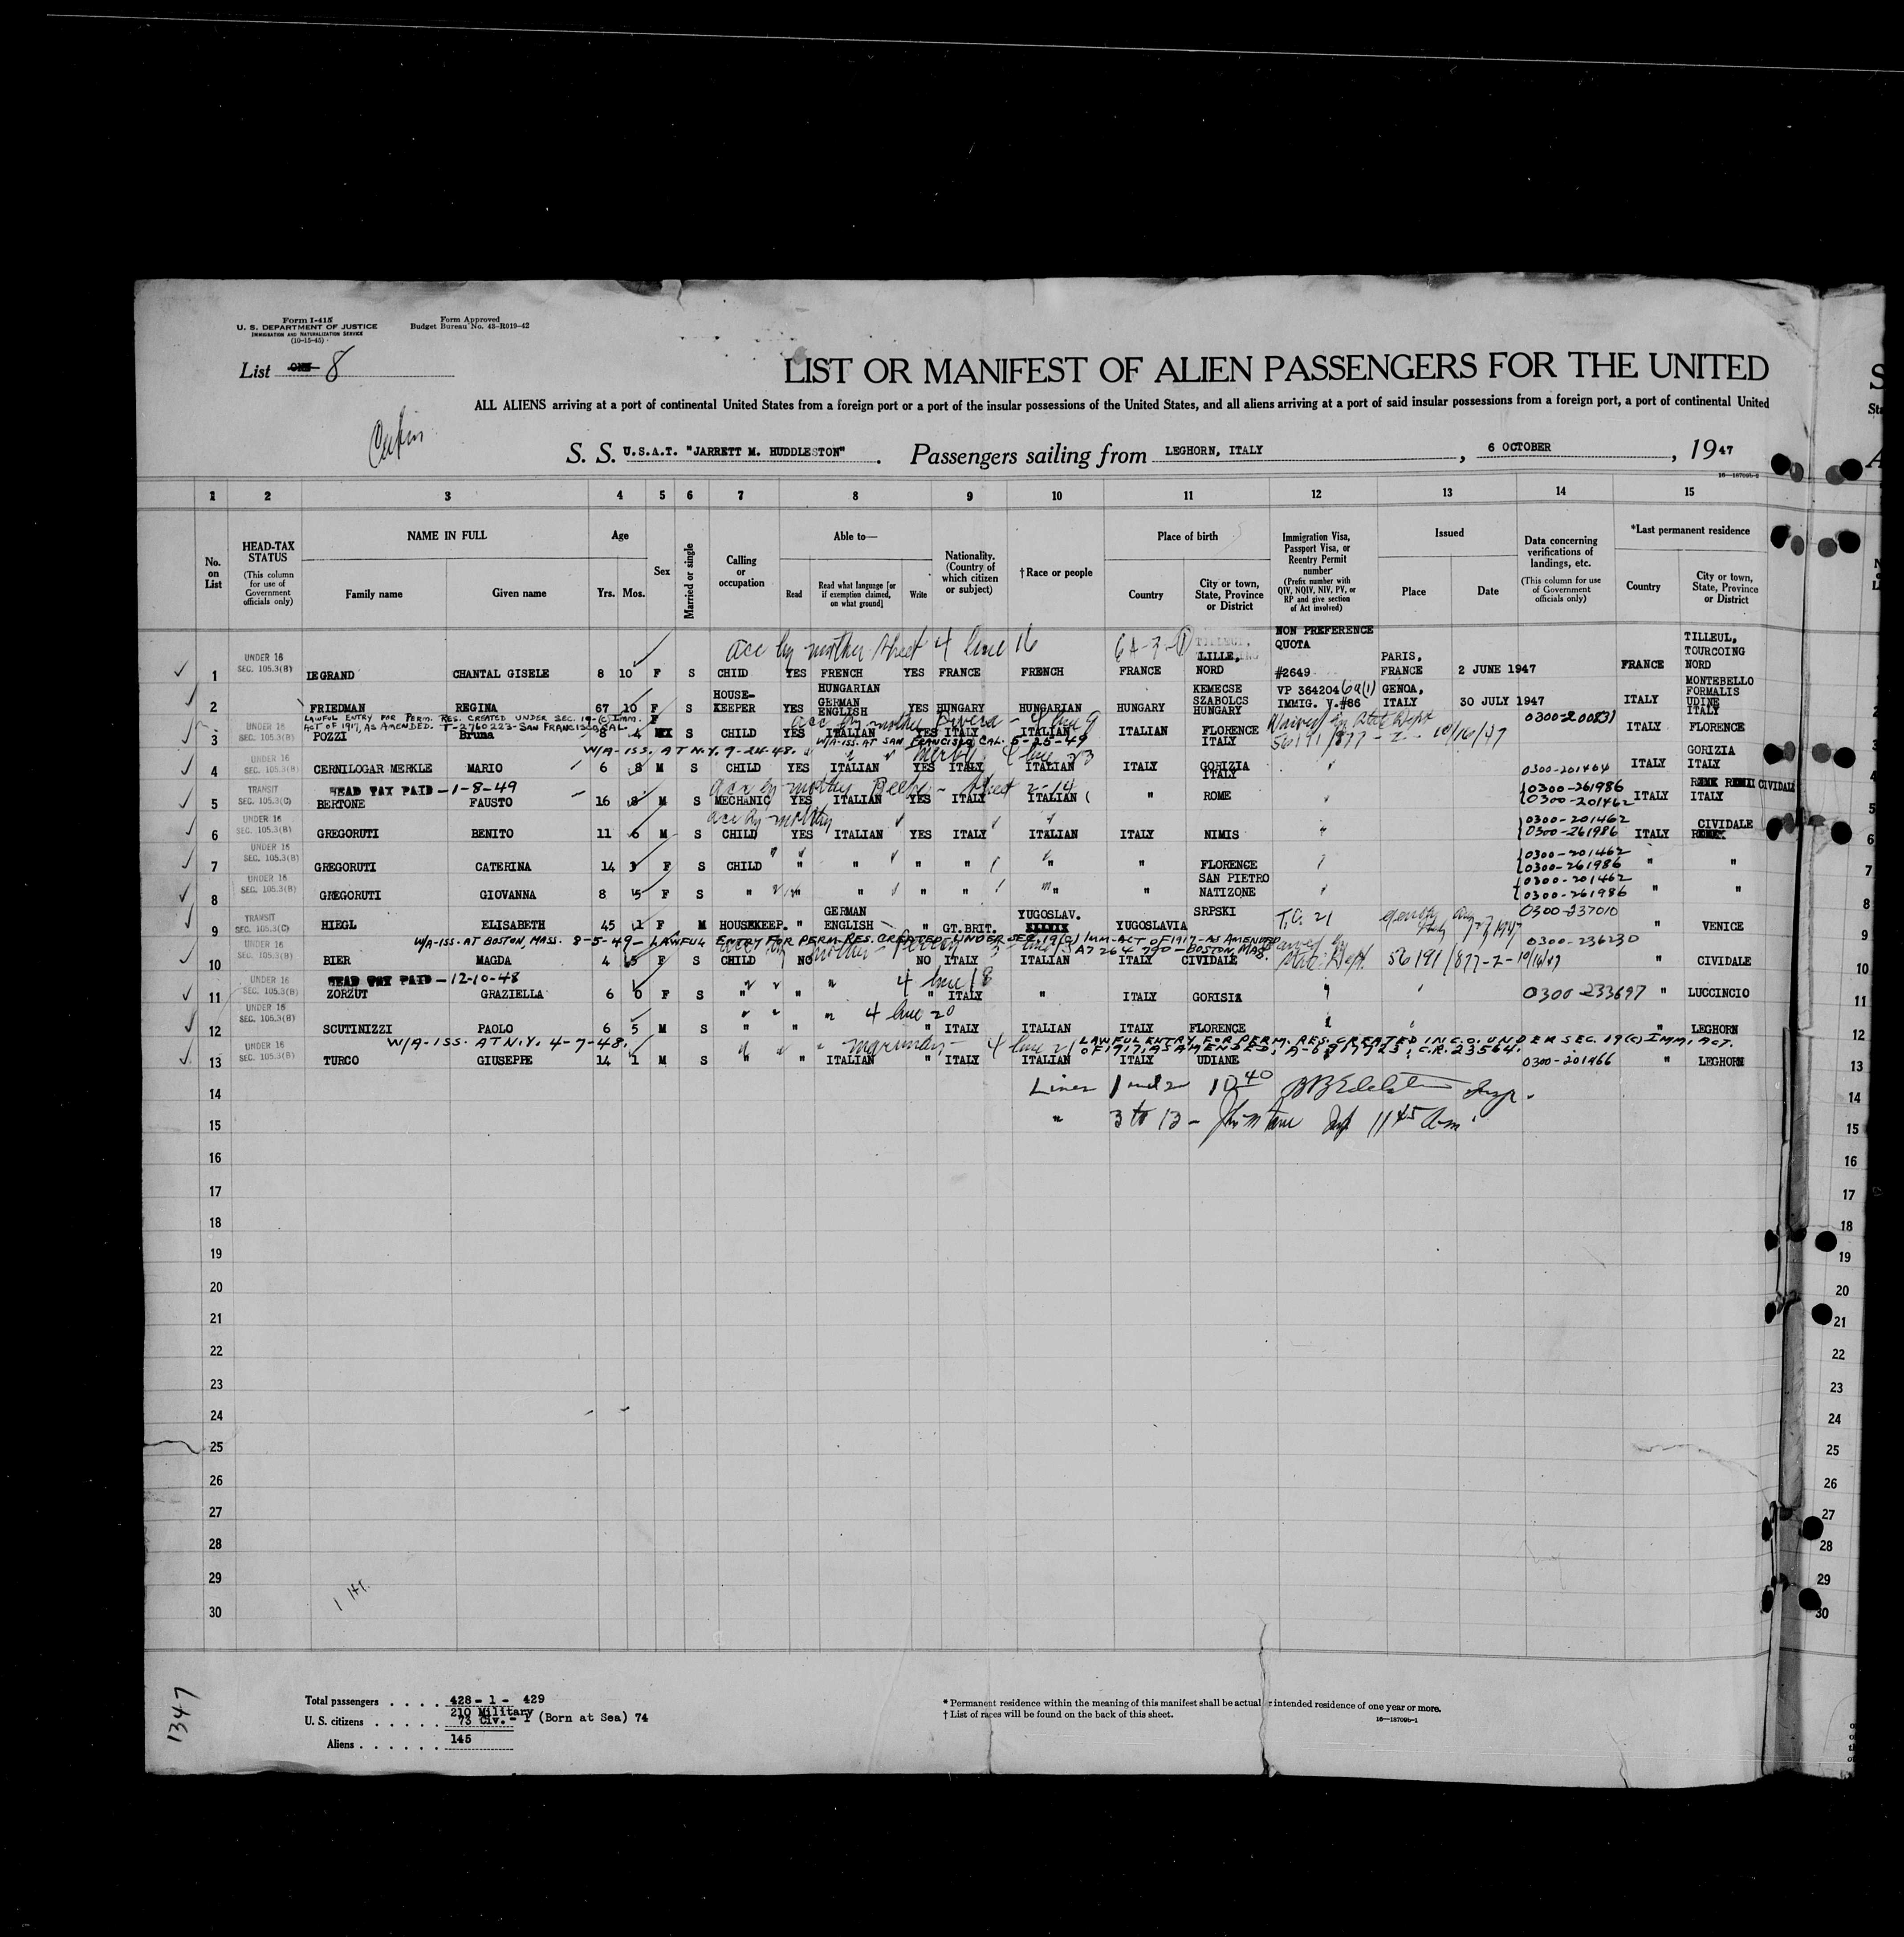 Form I-415
U. S. DEPARTMENT OF JUSTICE
IMMIGRATION AND NATURALIZATION SERVICE
(10-15-45)
Form Approved
Budget Bureau No. 43-R019-42
List ONE 8
LIST OR MANIFEST OF ALIEN PASSENGERS FOR THE UNITED
ALL ALIENS arriving at a port of continental United States from a foreign port or a port of the insular possessions of the United States, and all aliens arriving at a port of said insular possessions from a foreign port, a port of continental United
S. S. U.S.A.T. "JARRETT M. HUDDLESTON" . Passengers sailing from LEGHORN, ITALY , 6 OCTOBER , 1947
16-18709b-2
1 2 3 4 5 6 7 8 9 10 11 12 13 14 15
No. on List
HEAD-TAX STATUS (This column for use of Government officials only)
NAME IN FULL Family name Given name
Age Yrs. Mos.
Sex
Married or single
Calling or occupation
Able to— Read Read what language [or if exemption claimed, on what ground] Write
Nationality. (Country of which citizen or subject)
†Race or people
Place of birth Country City or town, State, Province or District
Immigration Visa, Passport Visa, or Reentry Permit number (Prefix number with QIV, NQIV, NIV, PV, or RP and give section of Act involved)
Issued Place Date
Data concerning verifications of landings, etc. (This column for use of Government officials only)
*Last permanent residence Country City or town, State, Province or District
acc by mother sheet 4 line 16
1 UNDER 16 SEC. 105.3(B) LEGRAND CHANTAL GISELE 8 10 F S CHILD YES FRENCH YES FRANCE FRENCH FRANCE LILLE, NORD NON PREFERENCE QUOTA #2649 PARIS, FRANCE 2 JUNE 1947 FRANCE TILLEUL, TOURCOING NORD
2 FRIEDMAN REGINA 67 10 F S HOUSE-KEEPER YES HUNGARIAN GERMAN ENGLISH YES HUNGARY HUNGARIAN HUNGARY KEMECSE SZABOLCS HUNGARY VP 364204 6a(1) IMMIG. V.#86 GENOA, ITALY 30 JULY 1947 ITALY MONTEBELLO FORMALIS UDINE ITALY
LAWFUL ENTRY FOR PERM. RES. CREATED UNDER SEC. 19-(C) IMM.
ACT OF 1917, AS AMENDED. T-2760223-SAN FRANCISCO, CAL.
acc by mother Rivera - 4 line 9
3 UNDER 16 SEC. 105.3(B) POZZI Bruna 8 4 F S CHILD YES ITALIAN YES ITALY ITALIAN ITALIAN FLORENCE ITALY Waived by State Dept 56191/877-2- 10/16/47 0300-200831 ITALY FLORENCE
W/A-ISS. AT N.Y. 9-24-48. W/A-ISS. AT SAN FRANCISCO CAL. 5-25-49
4 UNDER 16 SEC. 105.3(B) CERNILOGAR MERKLE MARIO 6 8 M S CHILD YES ITALIAN YES ITALY ITALIAN ITALY GORIZIA ITALY " 0300-201464 ITALY GORIZIA ITALY
HEAD TAX PAID - 1-8-49
5 TRANSIT SEC. 105.3(C) BERTONE FAUSTO 16 8 M S MECHANIC YES ITALIAN YES ITALY ITALIAN " ROME " 0300-261986 0300-201462 ITALY CIVIDALE ITALY
acc by mother
6 UNDER 16 SEC. 105.3(B) GREGORUTI BENITO 11 6 M S CHILD YES ITALIAN YES ITALY ITALIAN ITALY NIMIS " 0300-201462 0300-261986 ITALY CIVIDALE
7 UNDER 16 SEC. 105.3(B) GREGORUTI CATERINA 14 3 F S CHILD " " " " " " FLORENCE " 0300-201462 0300-261986 " "
8 UNDER 16 SEC. 105.3(B) GREGORUTI GIOVANNA 8 5 F S " " " " " " " SAN PIETRO NATIZONE " 0300-201462 0300-261986 " "
9 TRANSIT SEC. 105.3(C) HIEGL ELISABETH 45 1 F M HOUSEKEEP. " GERMAN ENGLISH " GT.BRIT. YUGOSLAV. YUGOSLAVIA SRPSKI 0300-237010 " VENICE
W/A-ISS. AT BOSTON, MASS. 8-5-49- LAWFUL ENTRY FOR PERM. RES. CREATED UNDER SEC. 19(C) IMM-ACT OF 1917-AS AMENDED
10 UNDER 16 SEC. 105.3(B) BIER MAGDA 4 5 F S CHILD NO NO ITALY ITALIAN ITALY CIVIDALE 56191/877-2- 10/16/47 0300-236230 " CIVIDALE
HEAD TAX PAID - 12-10-48
4 line 18
11 UNDER 16 SEC. 105.3(B) ZORZUT GRAZIELLA 6 0 F S " " " ITALY " ITALY GORISIA " 0300-233697 " LUCCINCIO
4 line 20
12 UNDER 16 SEC. 105.3(B) SCUTINIZZI PAOLO 6 5 M S " " " ITALY ITALIAN ITALY FLORENCE " " LEGHORN
W/A-ISS. AT N.Y. 4-7-48. 4 line 21 LAWFUL ENTRY FOR PERM. RES. CREATED IN C.O. UNDER SEC. 19(C) IMM. ACT.
OF 1917, AS AMENDED, A-6917923, C.R. 23564.
13 UNDER 16 SEC. 105.3(B) TURCO GIUSEPPE 14 1 M S " " ITALIAN " ITALY ITALIAN ITALY UDIANE 0300-201466 " LEGHORN
14 Lines 1 and 2 10 40 Insp.
15 " 3 to 13 - Insp 11 45 a-m
16
17
18
19
20
21
22
23
24
25
26
27
28
29
30
Total passengers . . . . 428 - 1 - 429
210 Military
U. S. citizens . . . . . 73 Civ. - 1 (Born at Sea) 74
Aliens . . . . . . 145
* Permanent residence within the meaning of this manifest shall be actual or intended residence of one year or more.
† List of races will be found on the back of this sheet.
16-18709b-1
1347